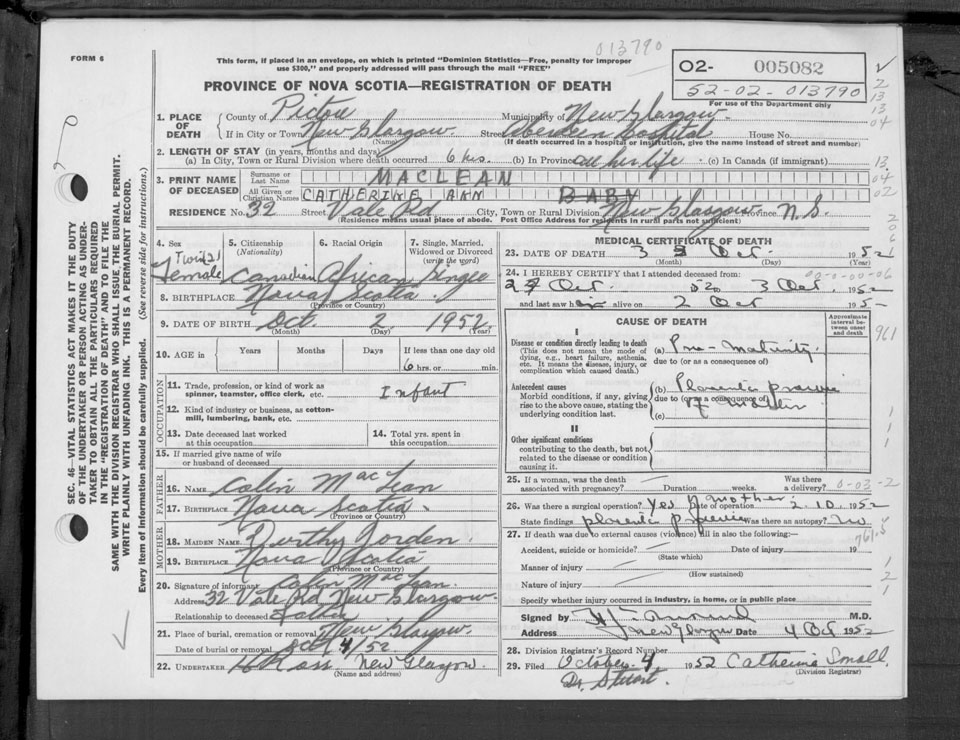 013790
FORM 6
This form, if placed in an envelope, on which is printed "Dominion Statistics—Free, penalty for improper
use $300," and properly addressed will pass through the mail "FREE"
PROVINCE OF NOVA SCOTIA—REGISTRATION OF DEATH
O2- 005082
52-02-013790
For use of the Department only
2
13
13
04
13
04
02
206
1. PLACE OF DEATH
County of Pictou Municipality of New Glasgow.
If in City or Town New Glasgow. Street Aberdeen Hospital House No.
(Name) (If death occurred in a hospital or institution, give the name instead of street and number)
2. LENGTH OF STAY (in years, months and days)
(a) In City, Town or Rural Division where death occurred 6 hrs. (b) In Province all her life (c) In Canada (if immigrant)
3. PRINT NAME OF DECEASED
Surname or Last Name MACLEAN
All Given or Christian Names CATHERINE ANN BABY
RESIDENCE No. 32 Street Vale Rd City, Town or Rural Division New Glasgow Province N.S.
(Residence means usual place of abode. Post Office Address for residents in rural parts not sufficient)
4. Sex Twin(2) Female
5. Citizenship (Nationality) Canadian
6. Racial Origin African
7. Single, Married, Widowed or Divorced (write the word) Single
8. BIRTHPLACE Nova Scotia.
(Province or Country)
9. DATE OF BIRTH Oct. 2 1952
(Month) (Day) (Year)
10. AGE in Years Months Days If less than one day old
6 hrs. or min.
OCCUPATION
11. Trade, profession, or kind of work as
spinner, teamster, office clerk, etc. Infant
12. Kind of industry or business, as cotton-
mill, lumbering, bank, etc.
13. Date deceased last worked
at this occupation
14. Total yrs. spent in
this occupation
15. If married give name of wife
or husband of deceased
FATHER
16. NAME Colin MacLean
17. BIRTHPLACE Nova Scotia.
(Province or Country)
MOTHER
18. MAIDEN NAME Jorden
19. BIRTHPLACE Nova Scotia
(Province or Country)
20. Signature of informant Colin MacLean.
Address 32 Vale Rd New Glasgow.
Relationship to deceased Father
21. Place of burial, cremation or removal New Glasgow.
Date of burial or removal Oct 4/52.
22. UNDERTAKER H Ross. New Glasgow.
(Name and address)
MEDICAL CERTIFICATE OF DEATH
23. DATE OF DEATH 3 Oct 1952
(Month) (Day) (Year)
24. I HEREBY CERTIFY that I attended deceased from:
2 Oct. to 3 Oct. 1952
and last saw her alive on 2 Oct 195-
CAUSE OF DEATH
Approximate interval between onset and death
I
Disease or condition directly leading to death
(This does not mean the mode of
dying, e.g., heart failure, asthenia,
etc. It means the disease, injury, or
complication which caused death.)
(a) Pre-maturity.
due to (or as a consequence of)
961
Antecedent causes
Morbid conditions, if any, giving
rise to the above cause, stating the
underlying condition last.
(b) Placenta previa
due to (or as a consequence of)
of mother
(c)
II
Other significant conditions
contributing to the death, but not
related to the disease or condition
causing it.
25. If a woman, was the death
associated with pregnancy? Duration weeks. Was there
a delivery? 0-03-2
26. Was there a surgical operation? Yes of mother Date of operation 2.10.1952
State findings placenta previa Was there an autopsy? No.
27. If death was due to external causes (violence) fill in also the following:
761.5
Accident, suicide or homicide? Date of injury 19
(State which)
Manner of injury
(How sustained)
Nature of injury
Specify whether injury occurred in industry, in home, or in public place
Signed by M.D.
Address New Glasgow Date 4 Oct 1952
28. Division Registrar's Record Number
29. Filed October. 4 1952 Catherine Small.
(Division Registrar)
Dr. Stuart.
SEC. 46—VITAL STATISTICS ACT MAKES IT THE DUTY
OF THE UNDERTAKER OR PERSON ACTING AS UNDER-
TAKER TO OBTAIN ALL THE PARTICULARS REQUIRED
IN THE "REGISTRATION OF DEATH" AND TO FILE THE
SAME WITH THE DIVISION REGISTRAR WHO SHALL ISSUE THE BURIAL PERMIT.
WRITE PLAINLY WITH UNFADING INK. THIS IS A PERMANENT RECORD.
Every item of information should be carefully supplied. (See reverse side for instructions.)